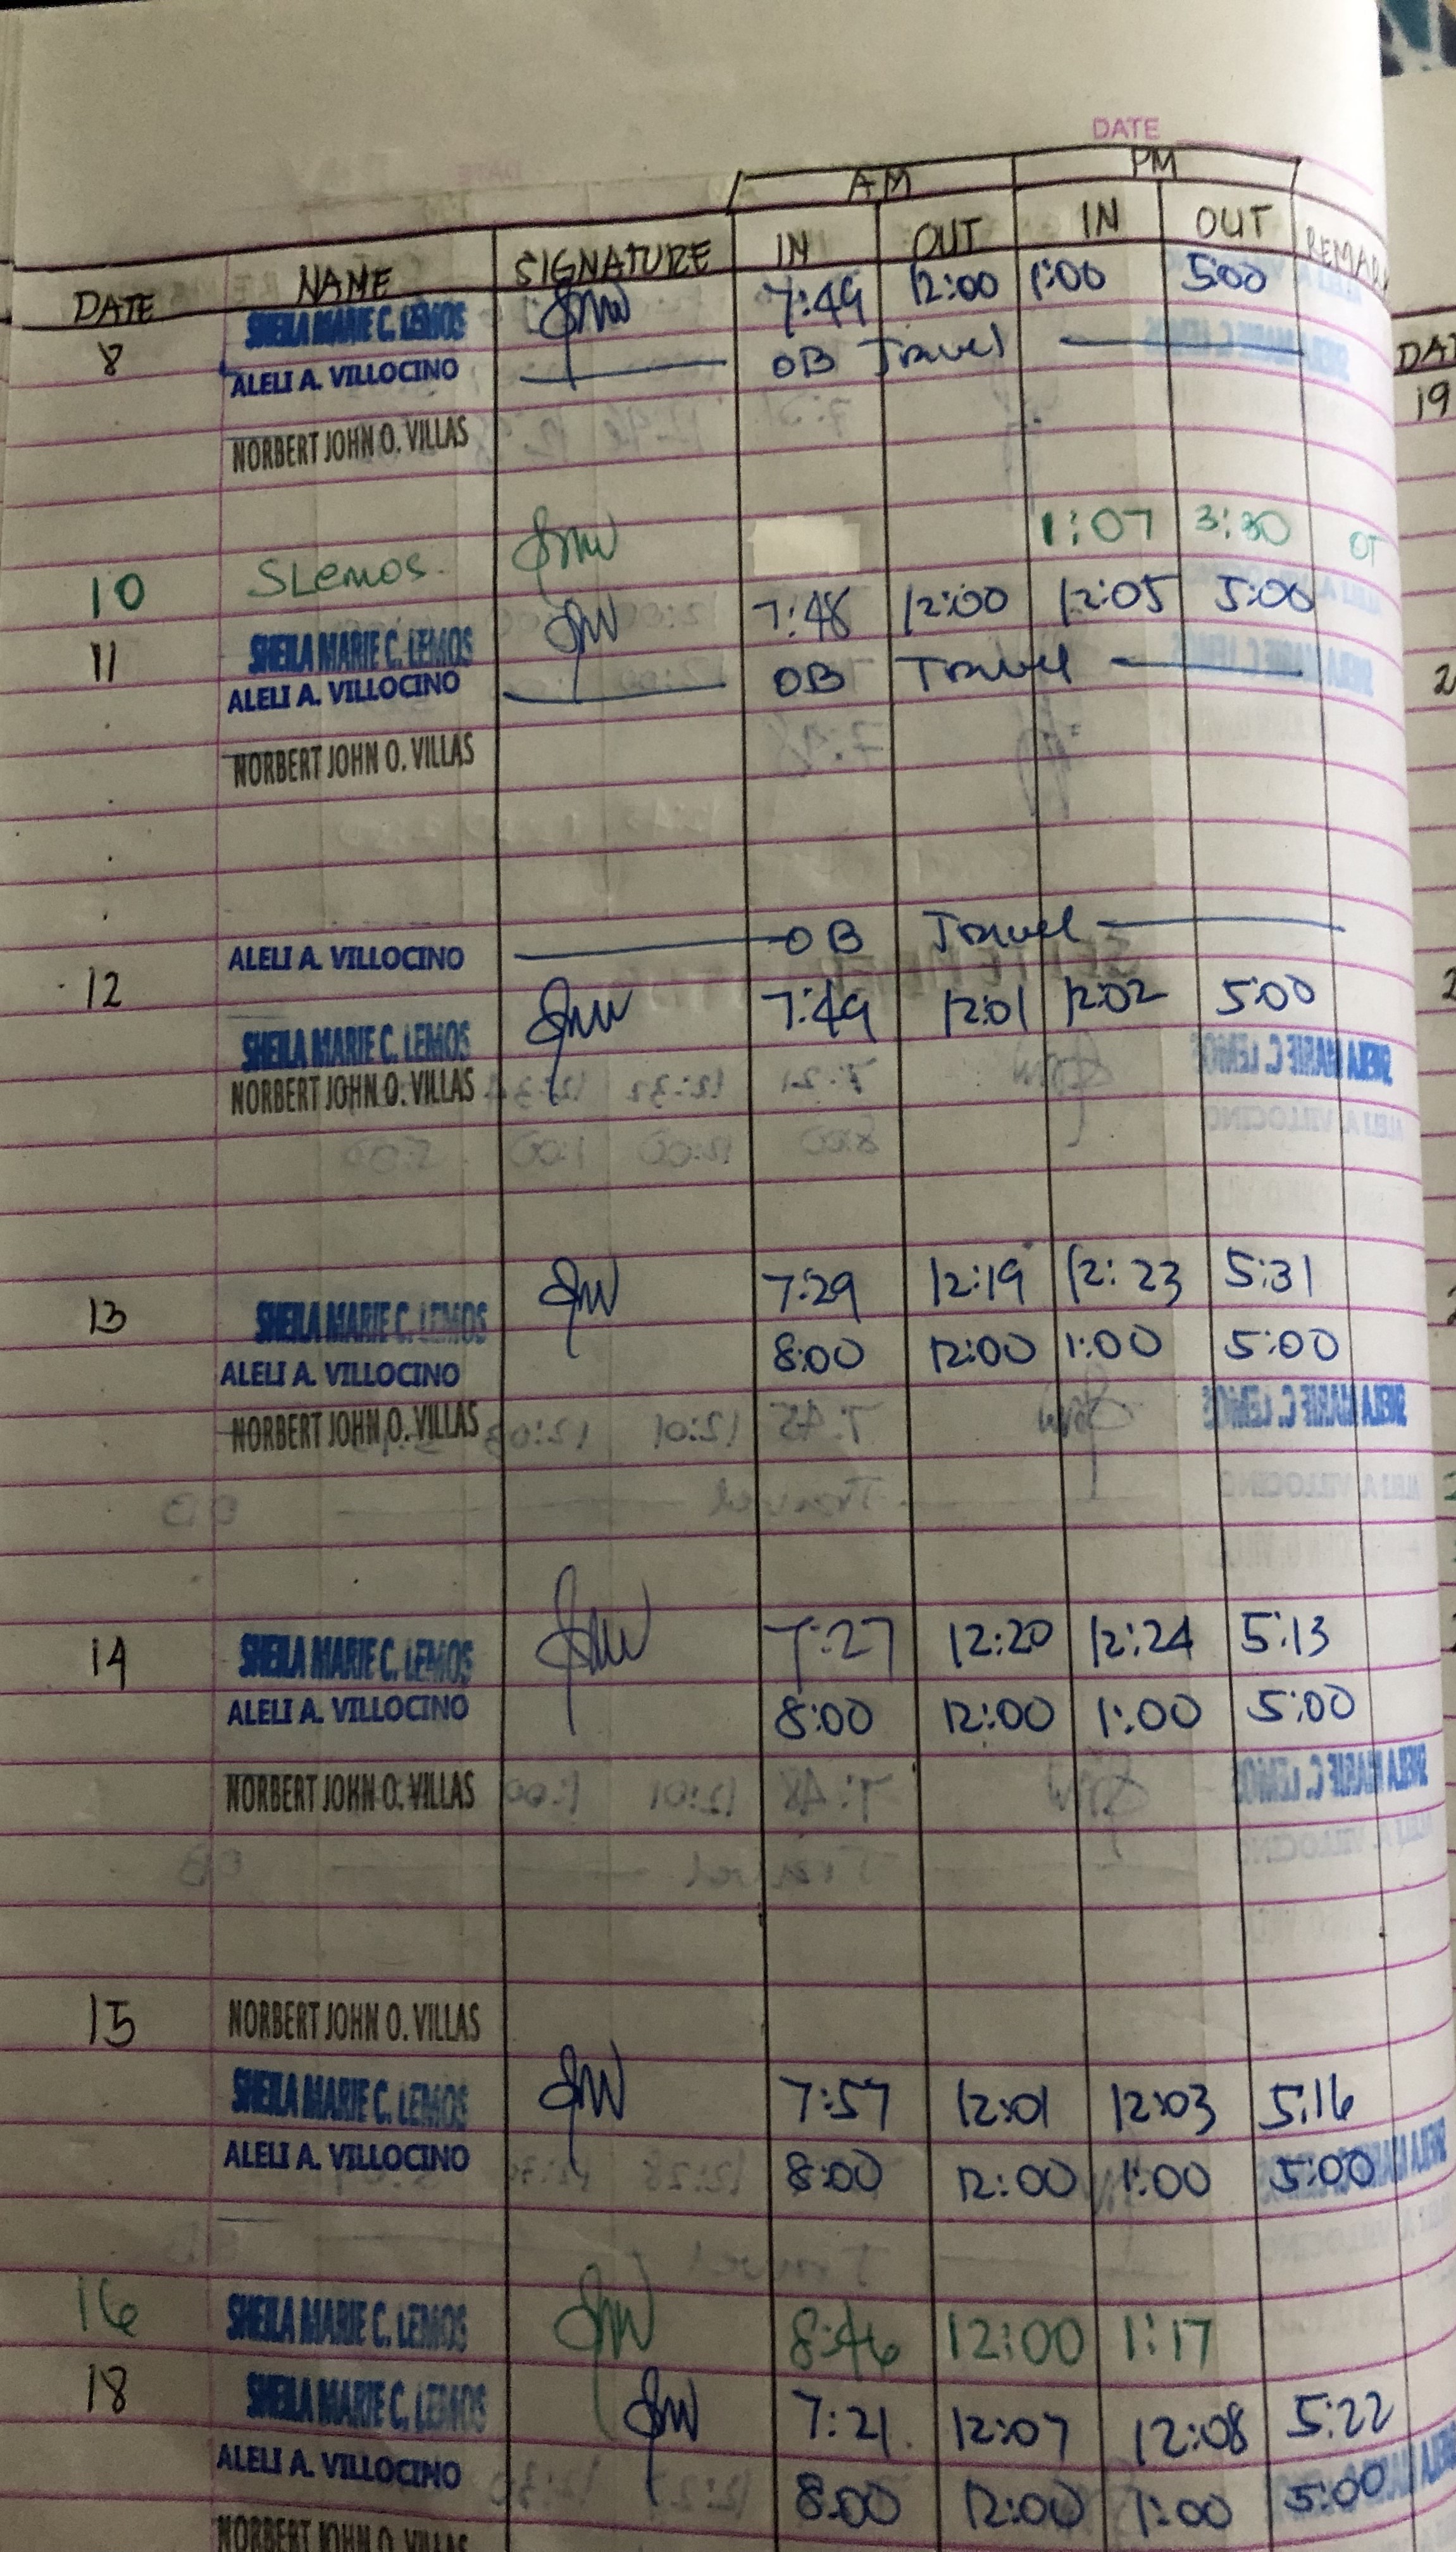 DATE
AM PM
DATE NAME SIGNATURE IN OUT IN OUT REMAR
8 SHEILA MARIE C. LEMOS 7:49 12:00 1:00 5:00
ALELI A. VILLOCINO OB Travel
NORBERT JOHN O. VILLAS
10 SLemos. 1:07 3:30 OT
11 SHEILA MARIE C. LEMOS 7:48 12:00 12:05 5:00
ALELI A. VILLOCINO OB Travel
NORBERT JOHN O. VILLAS
12 ALELI A. VILLOCINO OB Travel
SHEILA MARIE C. LEMOS 7:49 12:01 12:02 5:00
NORBERT JOHN O. VILLAS
13 SHEILA MARIE C. LEMOS 7:29 12:19 12:23 5:31
ALELI A. VILLOCINO 8:00 12:00 1:00 5:00
NORBERT JOHN O. VILLAS
14 SHEILA MARIE C. LEMOS 7:27 12:20 12:24 5:13
ALELI A. VILLOCINO 8:00 12:00 1:00 5:00
NORBERT JOHN O. VILLAS
15 NORBERT JOHN O. VILLAS
SHEILA MARIE C. LEMOS 7:57 12:01 12:03 5:16
ALELI A. VILLOCINO 8:00 12:00 1:00 5:00
16 SHEILA MARIE C. LEMOS 8:46 12:00 1:17
18 SHEILA MARIE C. LEMOS 7:21 12:07 12:08 5:22
ALELI A. VILLOCINO 8:00 12:00 1:00 5:00
NORBERT JOHN O. VILLAS
DAT
19